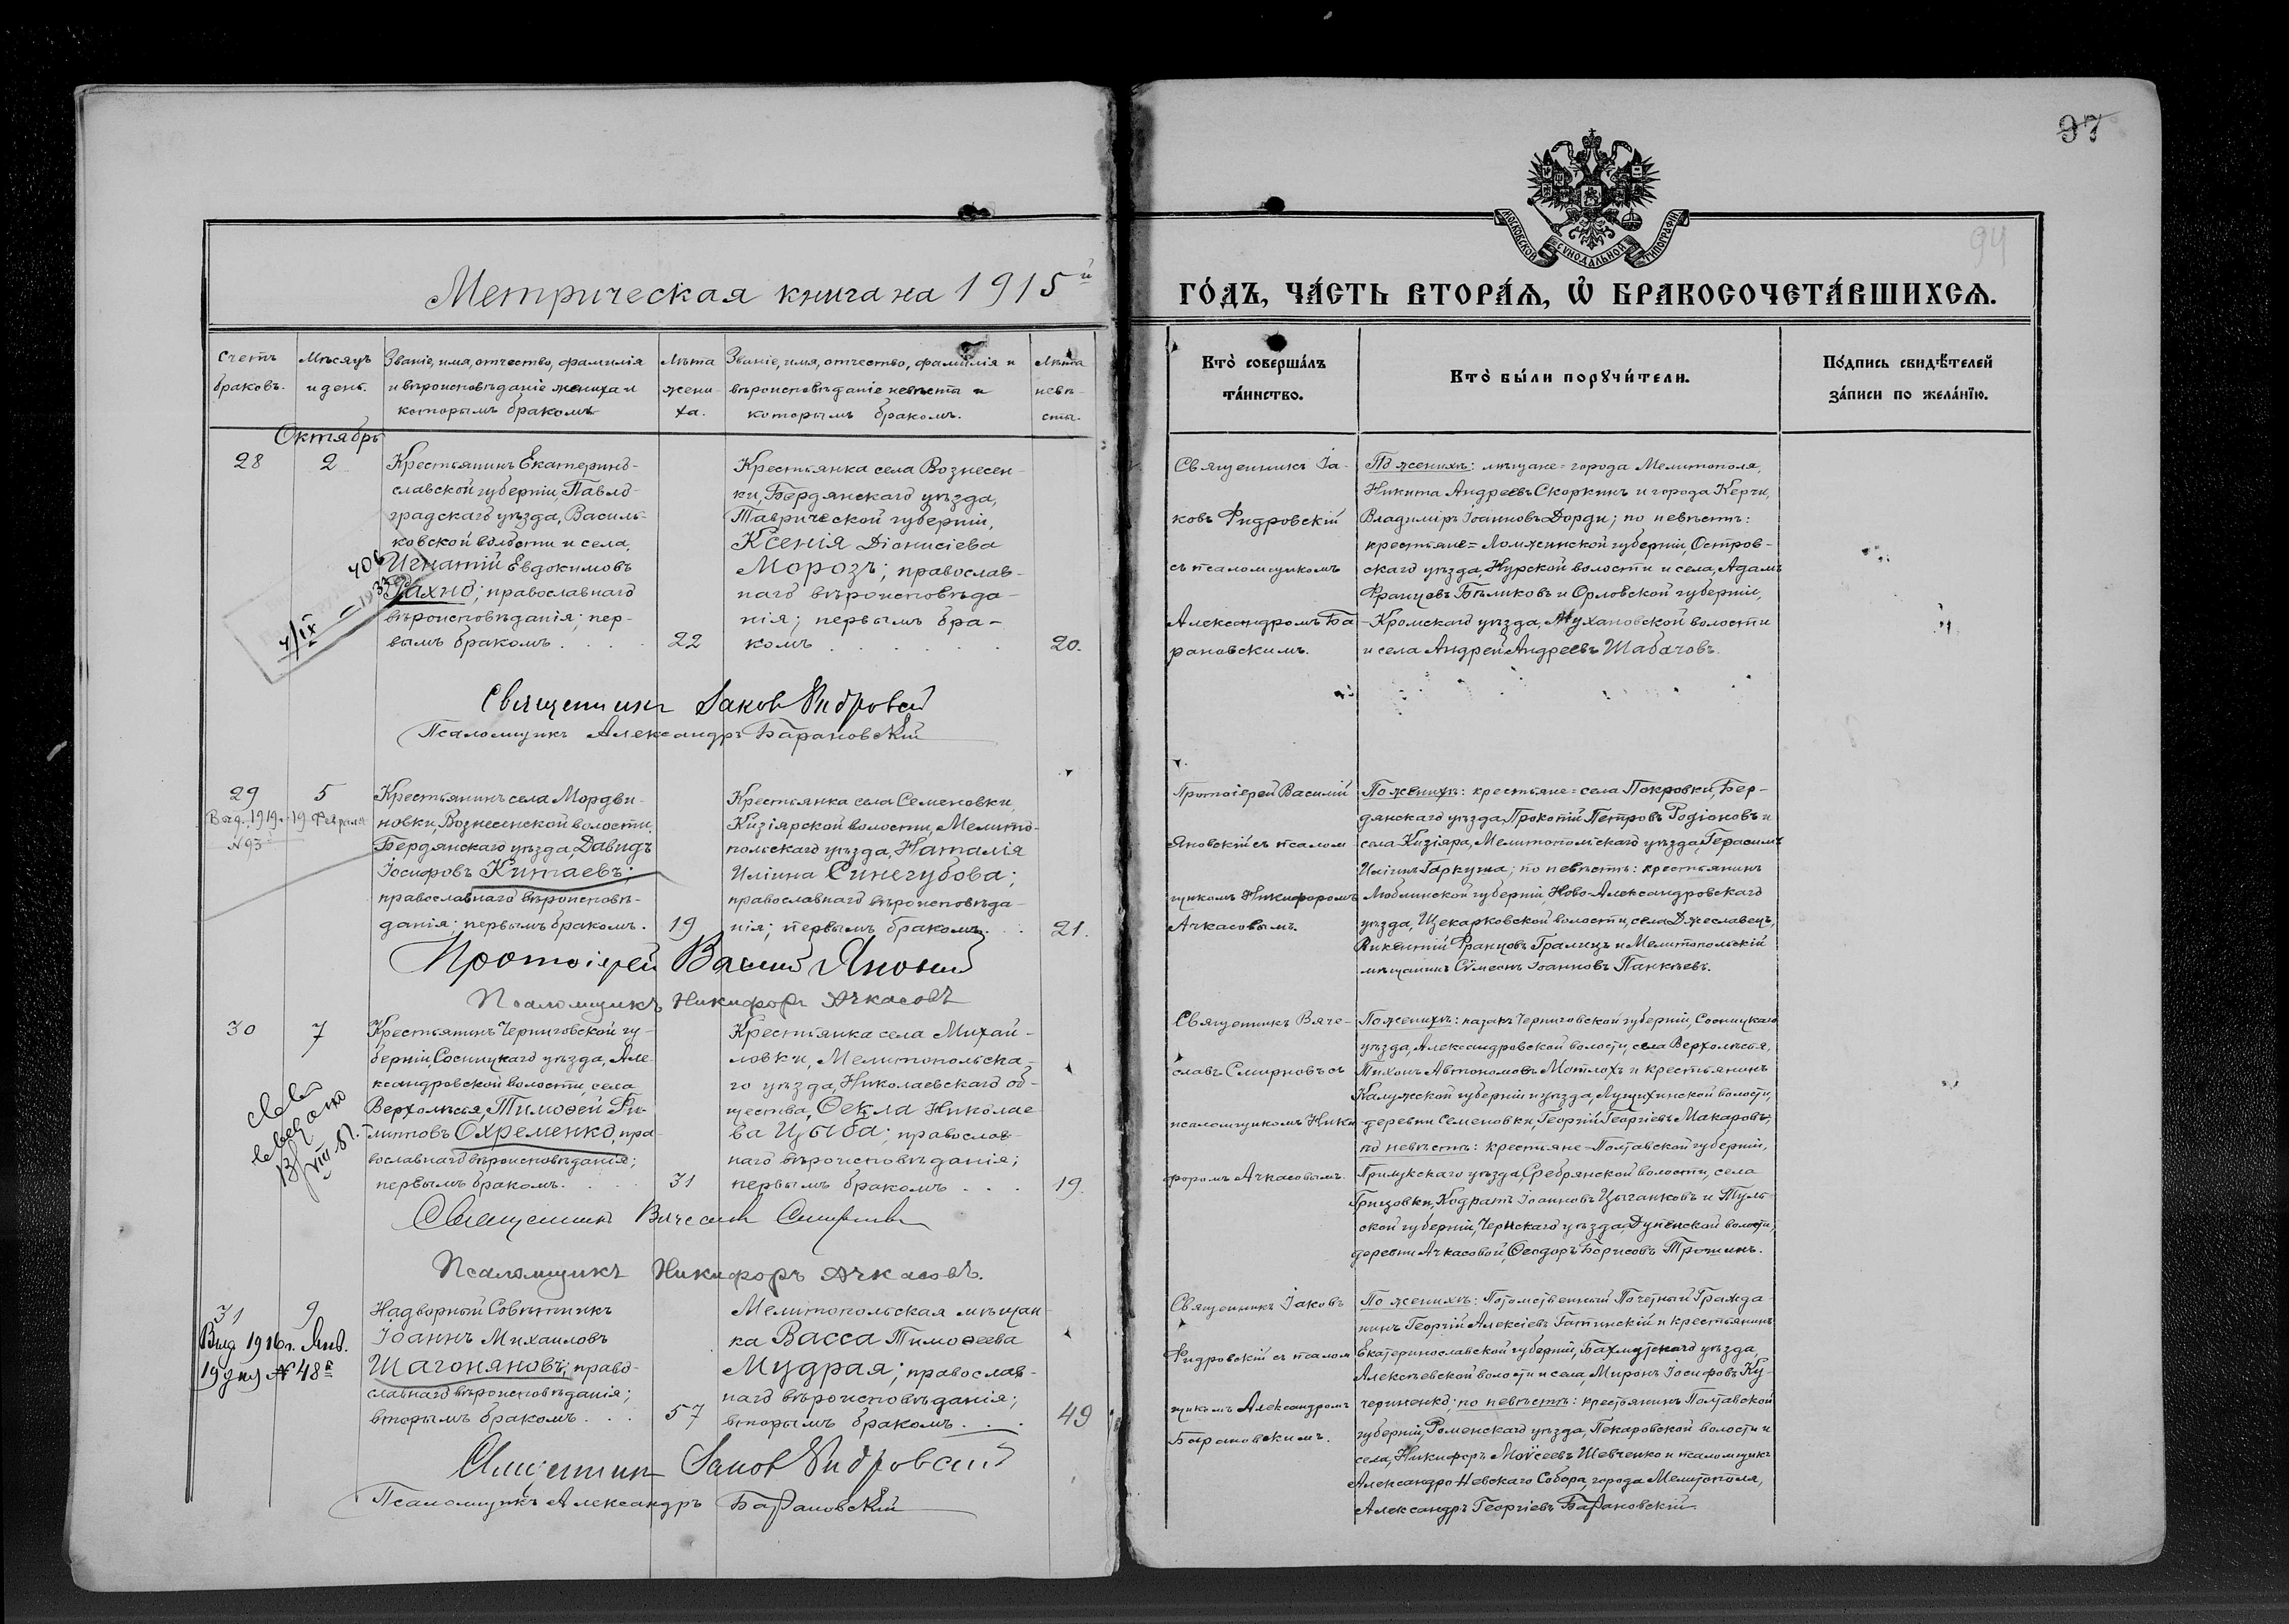 97
94
МОСКОВСКОЙ СѴНОДАЛЬНОЙ ТИПОГРАФІИ
Метрическая книга на 1915й
ГО́ДЪ, ЧА́СТЬ ВТОРА́Ѧ, Ѡ҆ БРАКОСОЧЕТА́ВШИХСѦ.
Счетъ браковъ.
Мѣсяцъ и день.
Званіе, имя, отчество, фамилія
и вѣроисповѣданіе жениха и
которымъ бракомъ
Лѣта жени-ха.
Званіе, имя, отчество, фамилія и
вѣроисповѣданіе невѣста и
которымъ бракомъ.
Лѣта невѣ-сты.
Кто̀ соверша́лъ
та́инство.
Кто̀ бы́ли порꙋчи́тели.
По́дпись свидѣ́телей
за́писи по жела́нїю.
Октябрь
28
2
Крестьянинъ Екатерино-
славской губерніи, Павло-
градскаго уѣзда, Василь-
ковской волости и села,
Игнатій Евдокимовъ
Рахно; православнаго
вѣроисповѣданія; пер-
вымъ бракомъ . . . .
22
Крестьянка села Вознесен-
ки, Бердянскаго уѣзда,
Таврической губерніи,
Ксенія Діонисіева
Морозъ; православ-
наго вѣроисповѣда-
нія; первымъ бра-
комъ . . . . . .
20.
406
4/IX
Священникъ Іа-
ковъ Фидровскій
съ псаломщикомъ
Александромъ Ба-
рановскимъ.
По женихѣ: мѣщане= города Мелитополя,
Никита Андреевъ Скоркинъ и города Керчи,
Владиміръ Іоанновъ Дорди; по невѣстѣ:
крестьяне= Ломжинской губерніи, Остров-
скаго уѣзда, Нурской волости и села, Адамъ
Францовъ Бѣликовъ и Орловской губерніи,
Кромскаго уѣзда, Мухановской волости
и села Андрей Андреевъ Шабачовъ.
Священникъ Іаковъ Фидровскій
Псаломщикъ Александръ Барановскій
29
5
Выд. 1919 г. 19 Февраля
№ 93
Крестьянинъ села Мордви-
новки, Вознесенской волости,
Бердянскаго уѣзда, Давидъ
Іосифовъ Китаевъ;
православнаго вѣроисповѣ-
данія; первымъ бракомъ.
19
Крестьянка села Семеновки,
Кизіярской волости, Мелито-
польскаго уѣзда, Наталія
Иліина Синегубова;
православнаго вѣроисповѣда-
нія; первымъ бракомъ. . .
21.
Протоіерей Василій
Яновскій съ псалом-
щикомъ Никифоромъ
Ачкасовымъ.
По женихѣ: крестьяне= села Покровки, Бер-
дянскаго уѣзда, Прокопій Петровъ Родіоновъ и
села Кизіяра, Мелитопольскаго уѣзда, Герасимъ
Иліинъ Гаркуша; по невѣстѣ: крестьянинъ
Люблинской губерніи, Ново-Александровскаго
уѣзда, Щекарковской волости, села Джеславецъ,
Викентій Францовъ Грамецъ и Мелитопольскій
мѣщанинъ Сѵмеонъ Іоанновъ Панкѣевъ.
Протоіерей Василій Яновскій
Псаломщикъ Никифоръ Ачкасовъ
30
7
Крестьянинъ Черниговской гу-
берніи, Сосницкаго уѣзда, Але-
ксандровской волости, села
Верхолѣсья, Тимоѳей Фи-
липповъ Охременко, пра-
вославнаго вѣроисповѣданія;
первымъ бракомъ. . . .
31
Крестьянка села Михай-
ловки, Мелитопольска-
го уѣзда, Николаевскаго об-
щества, Ѳекла Николае-
ва Цыба; православ-
наго вѣроисповѣданія;
первымъ бракомъ . . .
19.
13/VIII 81.
Священникъ Вяче-
славъ Смирновъ съ
псаломщикомъ Ники-
форомъ Ачкасовымъ.
По женихѣ: казакъ Черниговской губерніи, Сосницкаго
уѣзда, Александровской волости, села Верхолѣсья,
Тихонъ Автономовъ Матлохъ и крестьянинъ
Калужской губерніи и уѣзда, Лущихинской волости,
деревни Семеновки, Георгій Георгіевъ Макаровъ;
по невѣстѣ: крестьяне= Полтавской губерніи,
Прилукскаго уѣзда, Сребрянской волости, села
Грицовки, Кодратъ Іоанновъ Цыганковъ и Туль-
ской губерніи, Чернскаго уѣзда, Дупенской волости,
деревни Ачкасовой, Ѳеодоръ Борисовъ Трошинъ.
Священникъ Вячеславъ Смирновъ
Псаломщикъ Никифоръ Ачкасовъ.
31
9
Выд 1916 г. Янв.
19 дня № 48й
Надворный Совѣтникъ
Іоаннъ Михаиловъ
Шагоняновъ; право-
славнаго вѣроисповѣданія;
вторымъ бракомъ . . .
57
Мелитопольская мѣщан-
ка Васса Тимоѳеева
Мудрая; православ-
наго вѣроисповѣданія;
вторымъ бракомъ. . .
49
Священникъ Іаковъ
Фидровскій съ псалом-
щикомъ Александромъ
Барановскимъ.
По женихѣ: Потомственный Почетный Гражда-
нинъ Георгій Алексіевъ Гатинскій и крестьянинъ
Екатеринославской губерніи, Бахмутскаго уѣзда,
Алексѣевской волости и села, Миронъ Іосифовъ Ку-
чериненко; по невѣстѣ: крестьянинъ Полтавской
губерніи, Роменскаго уѣзда, Пекаровской волости и
села, Никифоръ Моѵсеевъ Шевченко и псаломщикъ
Александро-Невскаго Собора, города Мелитополя,
Александръ Георгіевъ Барановскій.
Священникъ Іаковъ Фидровскій
Псаломщикъ Александръ Барановскій